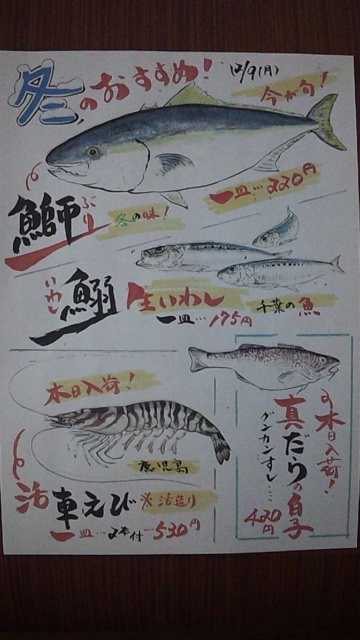 冬のおすすめ! 12/9(月)
今が旬!
鰤 ぶり
冬の味!
一皿…220円
鰯 いわし
生いわし
千葉の魚
一皿…175円
本日入荷!
鹿児島
活車えび ※活造り
一皿…2本付…530円
本日入荷!
真だらの白子
グンカンすし…
420円